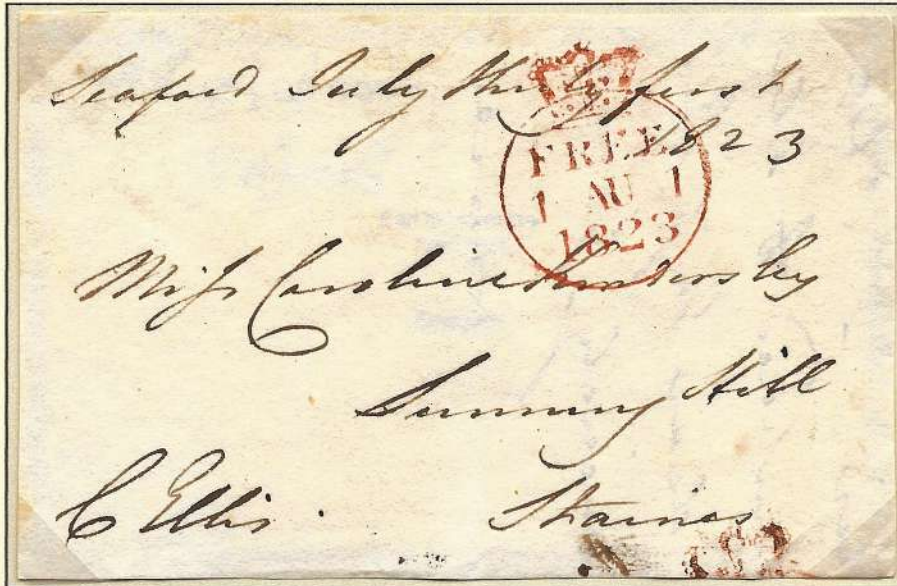 Seaford July thirty first
1823
FREE
1 AU 1
1823
Miss Caroline Kindersley
Sunning Hill
C Ellis.
Staines